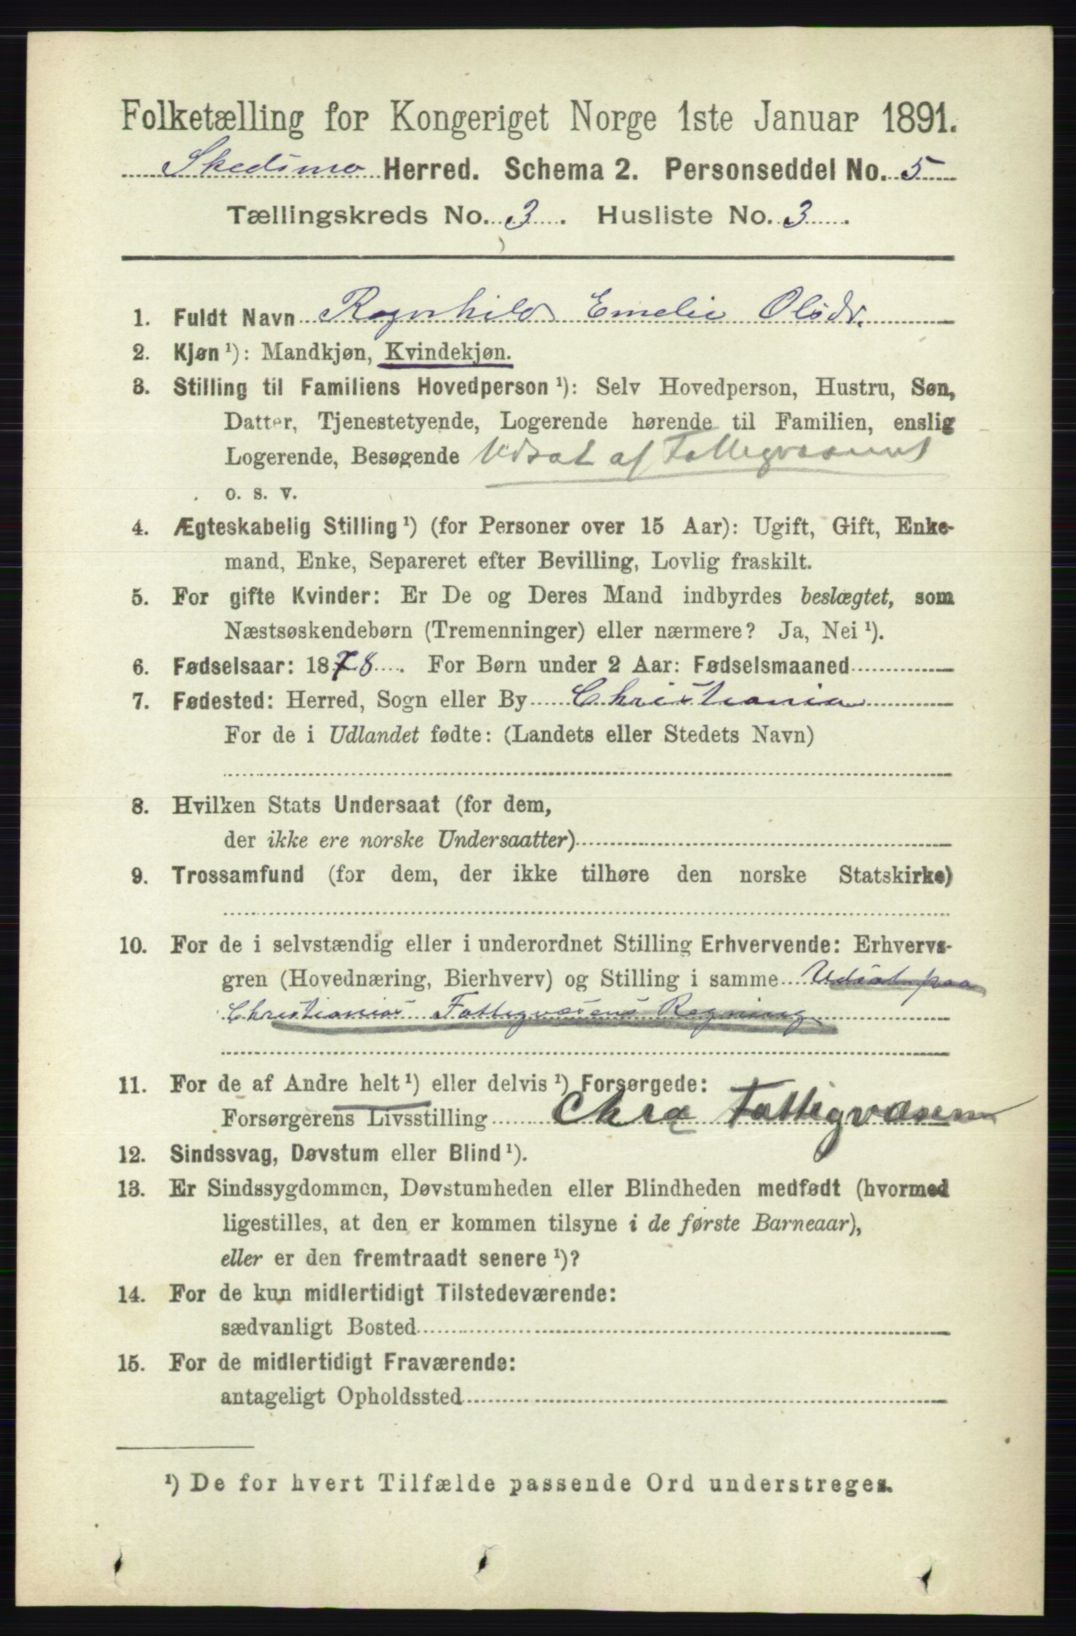 Folketælling for Kongeriget Norge 1ste Januar 1891.
Skedsmo Herred. Schema 2. Personseddel No. 5
Tællingskreds No. 3. Husliste No. 3.
1. Fuldt Navn Ragnhild Emelie Olsdr.
2. Kjøn ¹): Mandkjøn, Kvindekjøn.
3. Stilling til Familiens Hovedperson ¹): Selv Hovedperson, Hustru, Søn,
Datter, Tjenestetyende, Logerende hørende til Familien, enslig
Logerende, Besøgende Udsat af Fattigvæsenet
o. s. v.
4. Ægteskabelig Stilling ¹) (for Personer over 15 Aar): Ugift, Gift, Enke-
mand, Enke, Separeret efter Bevilling, Lovlig fraskilt.
5. For gifte Kvinder: Er De og Deres Mand indbyrdes beslægtet, som
Næstsøskendebørn (Tremenninger) eller nærmere? Ja, Nei ¹).
6. Fødselsaar: 1878. For Børn under 2 Aar: Fødselsmaaned
7. Fødested: Herred, Sogn eller By Christiania
For de i Udlandet fødte: (Landets eller Stedets Navn)
8. Hvilken Stats Undersaat (for dem,
der ikke ere norske Undersaatter)
9. Trossamfund (for dem, der ikke tilhøre den norske Statskirke)
10. For de i selvstændig eller i underordnet Stilling Erhvervende: Erhvervs-
gren (Hovednæring, Bierhverv) og Stilling i samme Udsat paa
Christianias Fattigvæsens Regning
11. For de af Andre helt ¹) eller delvis ¹) Forsørgede:
Forsørgerens Livsstilling Chra Fattigvæsen
12. Sindssvag, Døvstum eller Blind ¹).
13. Er Sindssygdommen, Døvstumheden eller Blindheden medfødt (hvormed
ligestilles, at den er kommen tilsyne i de første Barneaar),
eller er den fremtraadt senere ¹)?
14. For de kun midlertidigt Tilstedeværende:
sædvanligt Bosted
15. For de midlertidigt Fraværende:
antageligt Opholdssted
¹) De for hvert Tilfælde passende Ord understreges.